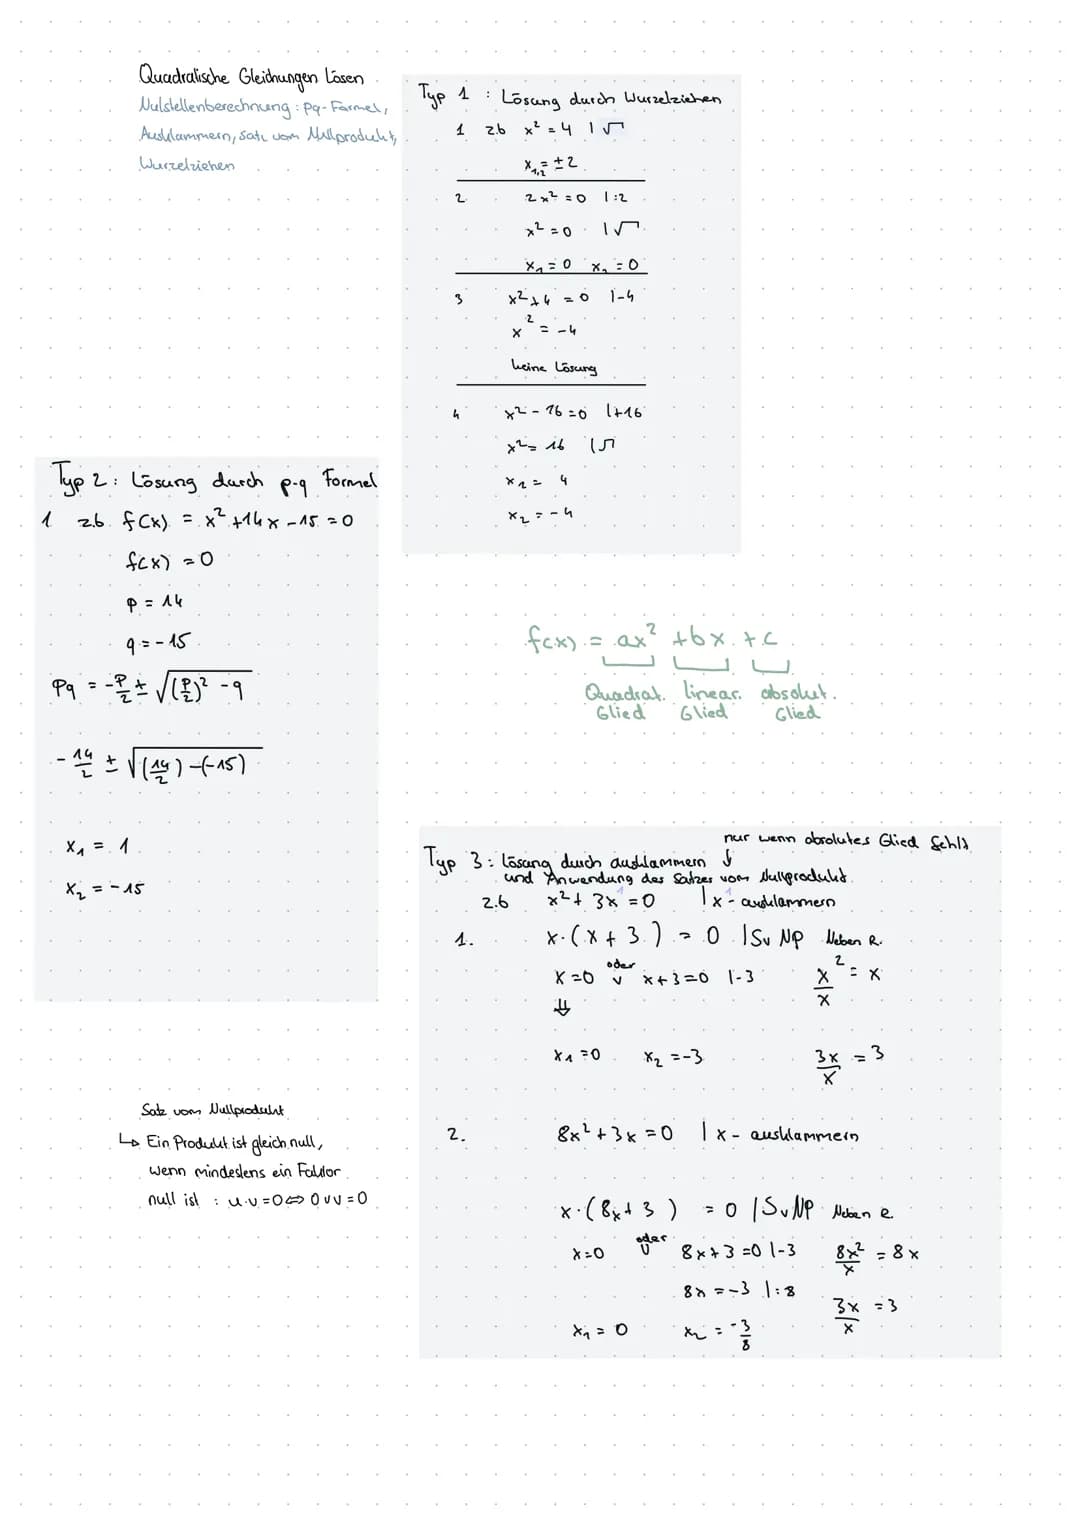 Quadratische Gleichungen Lösen
Nullstellenberechnung: pq-Formel,
Ausklammern, Satz vom Nullprodukt,
Wurzelziehen
Typ 1 : Lösung durch Wurzelziehen
1 zb x² = 4 | √
x₁,₂ = ±2
2 2x² = 0 | :2
x² = 0 | √
x₁ = 0 x₂ = 0
3 x² + 4 = 0 | -4
x² = -4
keine Lösung
4 x² - 16 = 0 | +16
x² = 16 | √
x₁ = 4
x₂ = -4
Typ 2 : Lösung durch p-q Formel
1 z.b. f(x) = x² + 14x - 15 = 0
f(x) = 0
p = 14
q = -15
Pq = -p/2 ± √((p/2)² - q)
-14/2 ± √((14/2) - (-15))
x₁ = 1
x₂ = -15
f(x) = ax² + bx + c
Quadrat. linear. absolut.
Glied Glied Glied
nur wenn absolutes Glied fehlt
Typ 3 : Lösung durch ausklammern ↓
und Anwendung des Satzes vom Nullprodukt
z.b x² + 3x¹ = 0 | x¹ - ausklammern
1. x · (x + 3) = 0 | SvNP Neben R.
x = 0 oder v x + 3 = 0 | -3 x²/x = x
⇓
x₁ = 0 x₂ = -3 3x/x = 3
2. 8x² + 3x = 0 | x - ausklammern
x · (8x + 3) = 0 | SvNP Neben R.
x = 0 oder v 8x + 3 = 0 | -3 8x²/x = 8x
8x = -3 | :8
3x/x = 3
x₁ = 0 x₂ = -3/8
Satz vom Nullprodukt
↳ Ein Produkt ist gleich null,
wenn mindestens ein Faktor
null ist : u·v = 0 ⇔ 0 v v = 0